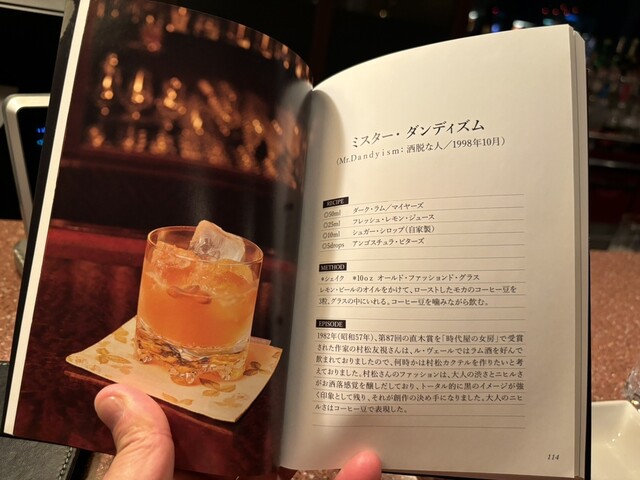 ミスター・ダンディズム
(Mr.Dandyism：洒脱な人／1998年10月)
RECIPE
◎50ml ダーク・ラム／マイヤーズ
◎25ml フレッシュ・レモン・ジュース
◎10ml シュガー・シロップ(自家製)
◎5drops アンゴスチュラ・ビターズ
METHOD
＊シェイク ＊10oz オールド・ファッションド・グラス
レモン・ピールのオイルをかけて、ローストしたモカのコーヒー豆を
3粒、グラスの中にいれる。コーヒー豆を噛みながら飲む。
EPISODE
1982年(昭和57年)、第87回の直木賞を「時代屋の女房」で受賞
された作家の村松友視さんは、ル・ヴェールではラム酒を好んで
飲まれておりましたので、何時かは村松カクテルを作りたいと考
えておりました。村松さんのファッションは、大人の渋さとニヒルさ
がお洒落感覚を醸しだしており、トータル的に黒のイメージが強
く印象として残り、それが創作の決め手になりました。大人のニヒ
ルさはコーヒー豆で表現した。
114